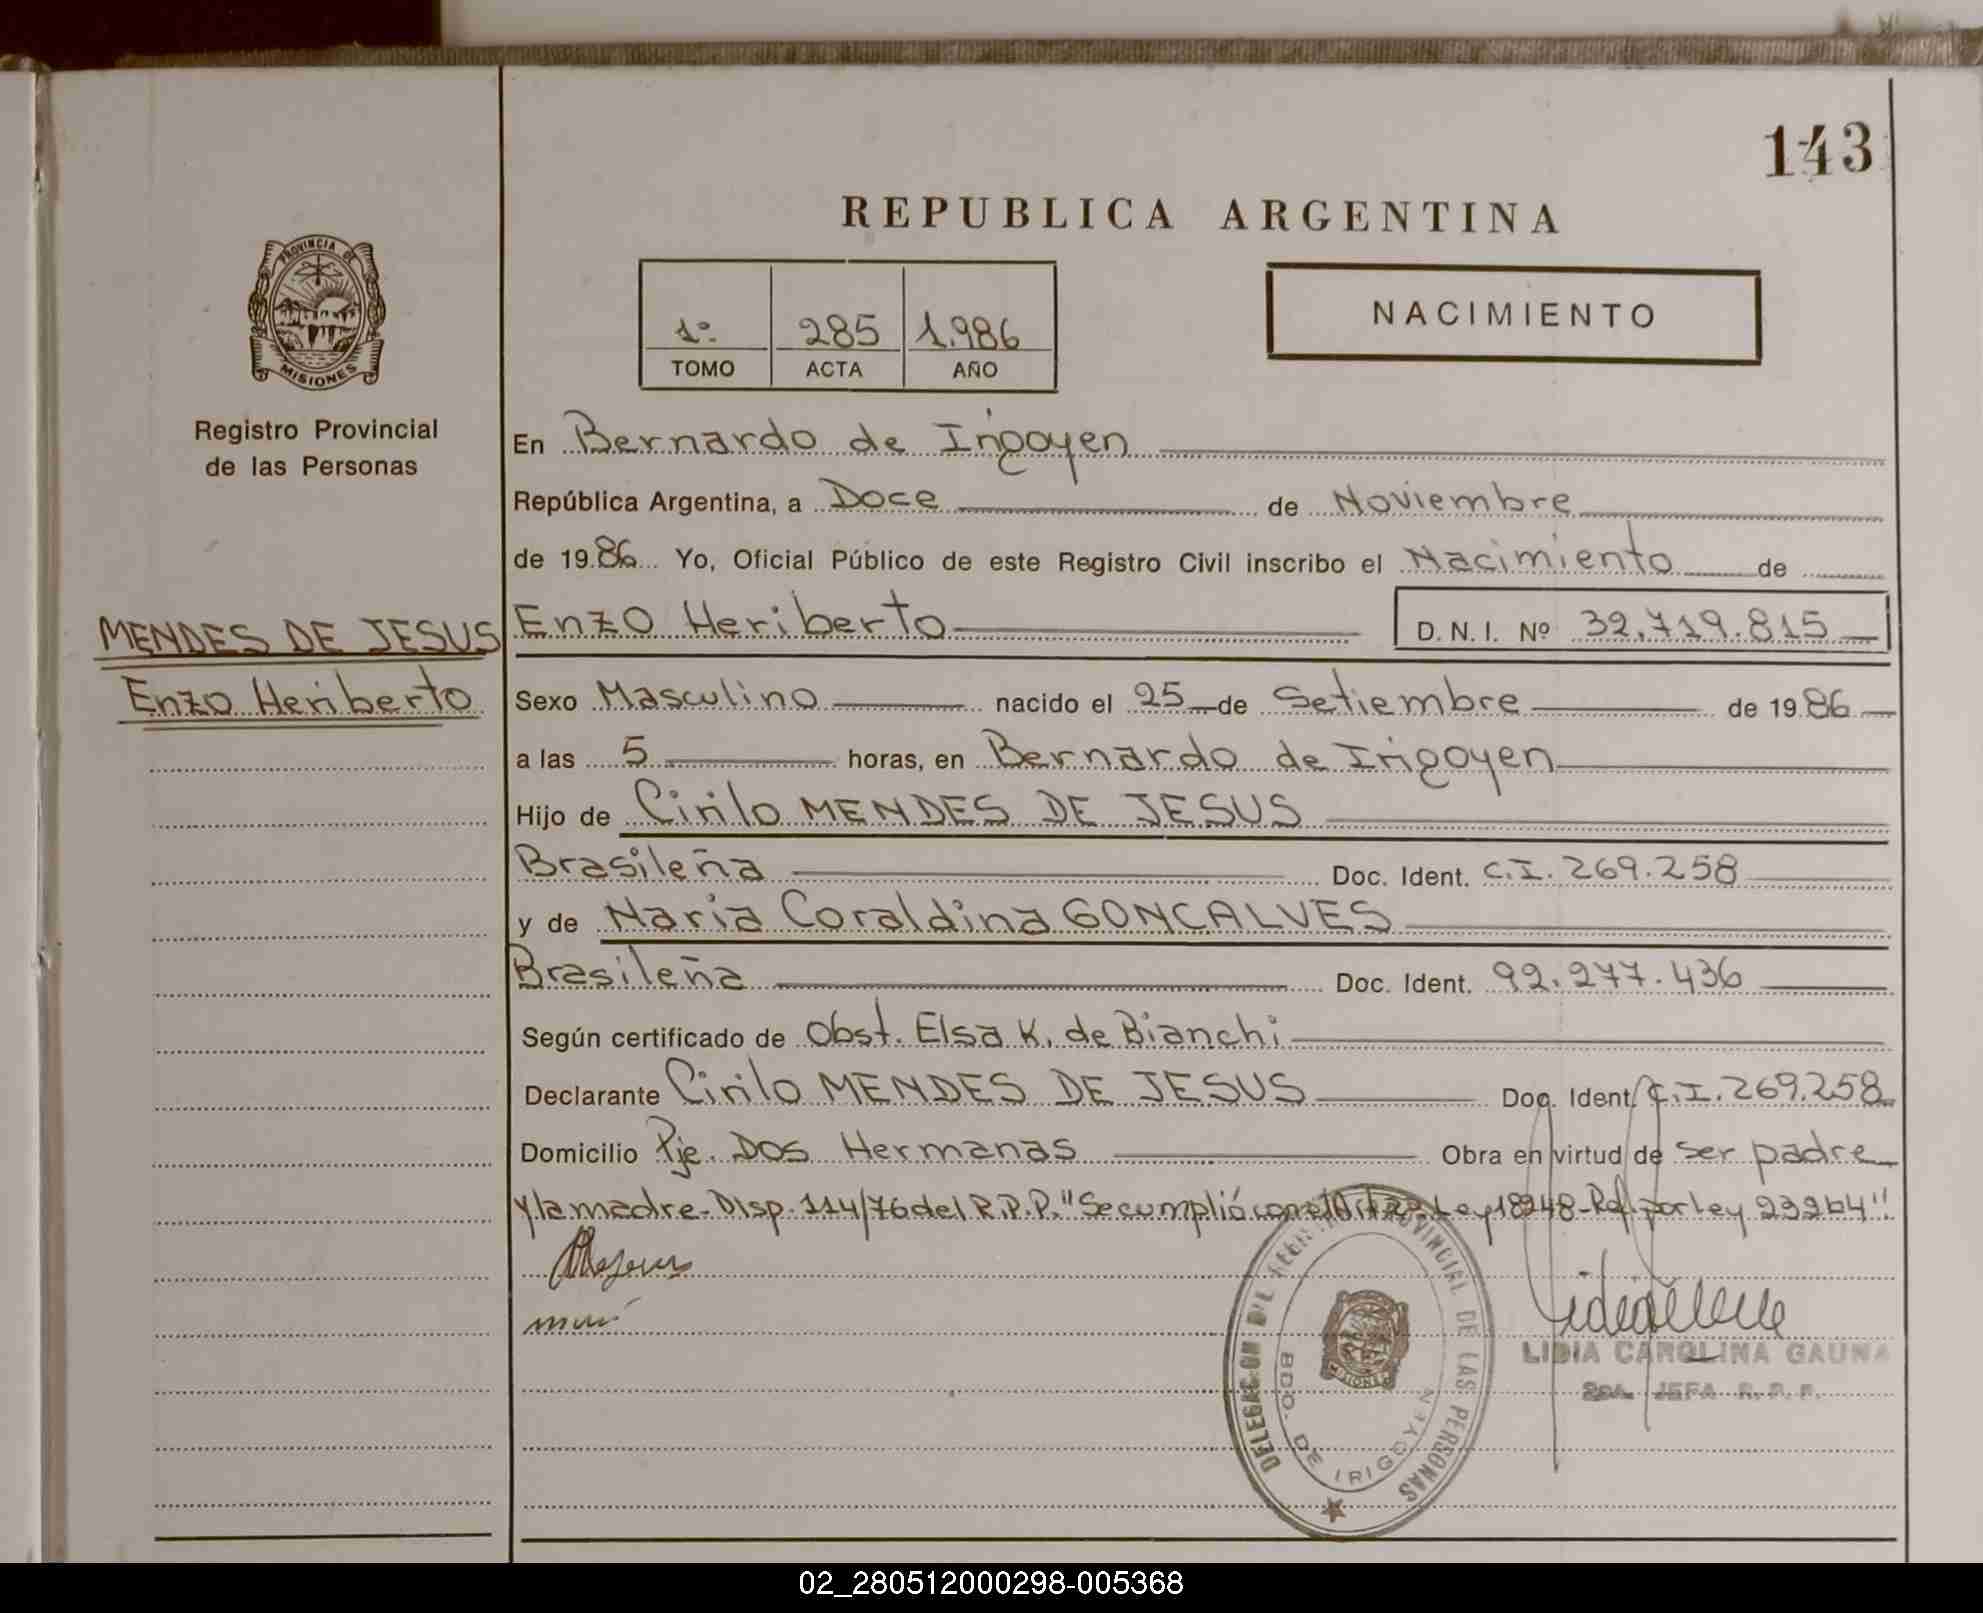 143
REPUBLICA ARGENTINA
PROVINCIA DE
MISIONES
Registro Provincial
de las Personas
1º 285 1.986
TOMO ACTA AÑO
NACIMIENTO
En Bernardo de Irigoyen
República Argentina, a Doce de Noviembre
de 19 86 Yo, Oficial Público de este Registro Civil inscribo el Nacimiento de
MENDES DE JESUS
Enzo Heriberto
Enzo Heriberto D.N.I. Nº 32.719.815
Sexo Masculino nacido el 25 de Setiembre de 19 86
a las 5 horas, en Bernardo de Irigoyen
Hijo de Cirilo MENDES DE JESUS
Brasileña Doc. Ident. C.I. 269.258
y de Maria Coraldina GONCALVES
Brasileña Doc. Ident. 92.277.436
Según certificado de Obst. Elsa K. de Bianchi
Declarante Cirilo MENDES DE JESUS Doc. Ident. C.I. 269.258
Domicilio Pje. Dos Hermanas Obra en virtud de ser padre
y la madre - Disp. 114/76 del R.P.P. "Se cumplió con el Ley 18248 - Ref. por ley 23264"
DELEGACION DEL REGISTRO PROVINCIAL DE LAS PERSONAS
BDO. DE IRIGOYEN
MISIONES
LIDIA CAROLINA GAUNA
JEFA R.P.P.
02_280512000298-005368